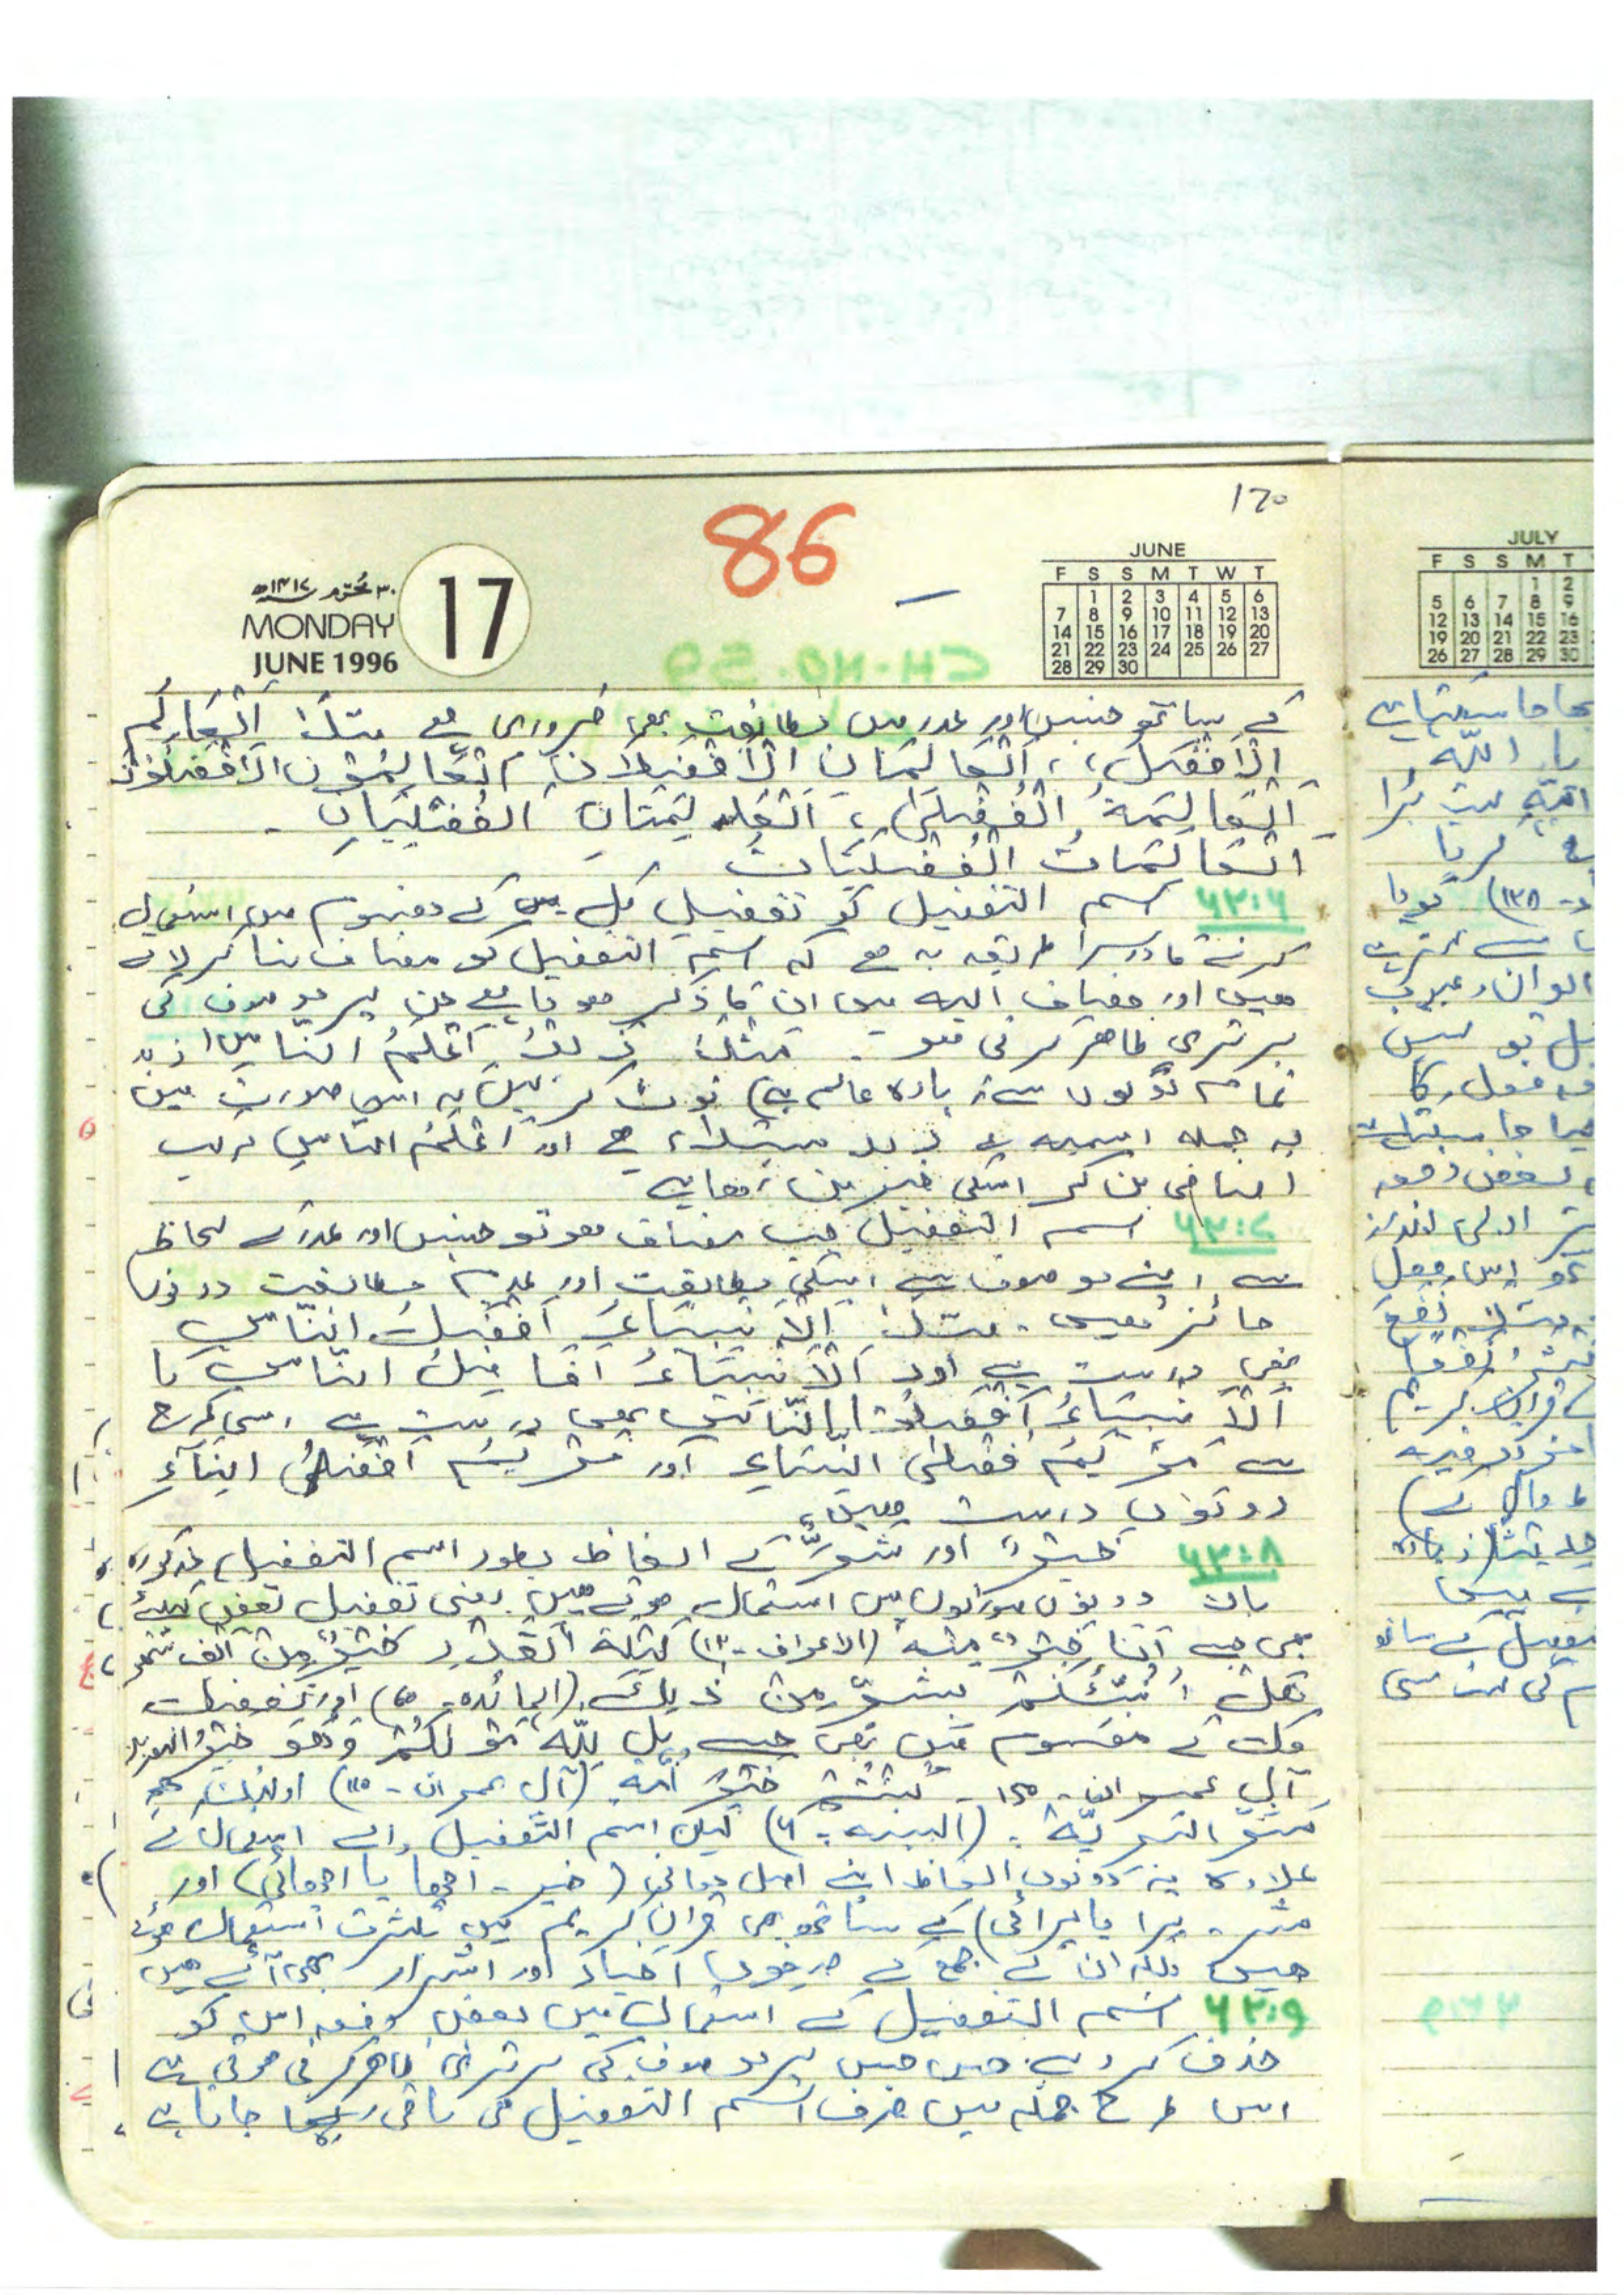 ۱۲۰
86
۳۰ محرم ۱۴۱۷ھ
MONDAY
JUNE 1996
17
JUNE
F S S M T W T
1 2 3 4 5 6
7 8 9 10 11 12 13
14 15 16 17 18 19 20
21 22 23 24 25 26 27
28 29 30
کے ساتھ جنس اور عدد میں مطابقت بھی ضروری ہے مثلاً اَلْعَالِمُ
الْاَفْضَلُ، اَلْعَالِمَانِ الْاَفْضَلَانِ، اَلْعَالِمُوْنَ الْاَفْضَلُوْنَ
اَلْعَالِمَةُ الْفُضْلٰی، اَلْعَالِمَتَانِ الْفُضْلَیَانِ۔
اَلْعَالِمَاتُ الْفُضْلَیَاتُ
۶۳:۶ اسم التفضیل کو تفضیل کل کے مفہوم میں استعمال
کرنے کا دوسرا طریقہ یہ ہے کہ اسم التفضیل کو مضاف بنا کر لاتے
ہیں اور مضاف الیہ میں ان کا ذکر ہوتا ہے جن پر موصوف کی
برتری ظاہر کرنی ہو۔ مثلاً زَیْدٌ اَعْلَمُ النَّاسِ (زید
تمام لوگوں سے زیادہ عالم ہے) نوٹ کر لیں کہ اس صورت میں
یہ جملہ اسمیہ ہے زید مبتداء ہے اور اَعْلَمُ الناسِ مرکب
اضافی بن کر اسکی خبر بن رہا ہے
۶۳:۷ اسم التفضیل جب مضاف ہو تو جنس اور عدد کے لحاظ
سے اپنے موصوف سے اسکی مطابقت اور عدم مطابقت دونوں
جائز ہیں۔ مثلاً اَلْاَنْبِیَاءُ اَفْضَلُ النَّاسِ
بھی درست ہے اور اَلْاَنْبِیَاءُ اَفَاضِلُ النَّاسِ یا
اَلْاَنْبِیَاءُ اَفْضَلُوا النَّاسِ بھی درست ہے اسی طرح
سے مَرْیَمُ فُضْلٰی النِّسَاءِ اور مَرْیَمُ اَفْضَلُ النِّسَاءِ
دونوں درست ہیں
۶۳:۸ خَیْرٌ اور شَرٌّ کے الفاظ بطور اسم التفضیل مذکورہ
بالا دونوں صورتوں میں استعمال ہوتے ہیں یعنی تفضیل بعض کیلئے
بھی جیسے اَنَا خَیْرٌ مِنْہُ (الاعراف۔۱۲) لَیْلَةُ الْقَدْرِ خَیْرٌ مِنْ اَلْفِ شَہْرٍ،
ھَلْ اُنَبِّئُکُمْ بِشَرٍّ مِنْ ذٰلِکَ (المائدہ۔۶۰) اور تفضیل
کل کے مفہوم میں بھی جیسے بَلِ اللّٰہُ مَوْلٰکُمْ وَھُوَ خَیْرُ النّٰصِرِیْنَ
آل عمران۔۱۵۰۔ کُنْتُمْ خَیْرَ اُمَّةٍ (آل عمران۔۱۱۰) اُولٰئِکَ ھُمْ
شَرُّ الْبَرِیَّةِ۔ (البینہ۔۶) لیکن اسم التفضیل والے استعمال کے
علاوہ یہ دونوں الفاظ اپنے اصل معانی (خیر۔ اچھا یا اچھائی) اور
شر۔ برا یا برائی) کے ساتھ بھی قرآن کریم میں بکثرت استعمال ہوئے
ہیں بلکہ ان کے جمع کے صیغوں اخیار اور اشرار بھی آئے ہیں
۶۳:۹ اسم التفضیل کے استعمال میں بعض دفعہ اس کو
حذف کر دیتے ہیں جس پر موصوف کی برتری ظاہر کرنی ہوتی ہے
اس طرح جملہ میں صرف اسم التفضیل ہی باقی رہ جاتا ہے
JULY
F S S M T
1 2
5 6 7 8 9
12 13 14 15 16
19 20 21 22 23
26 27 28 29 30